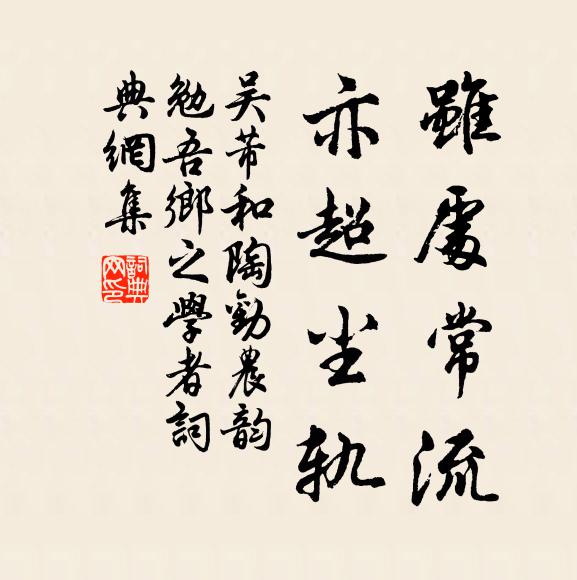 雖處常流
亦超尘軌
吴芾和陶勸農韵
勉吾鄉之學者詞
典網集
詞典網印